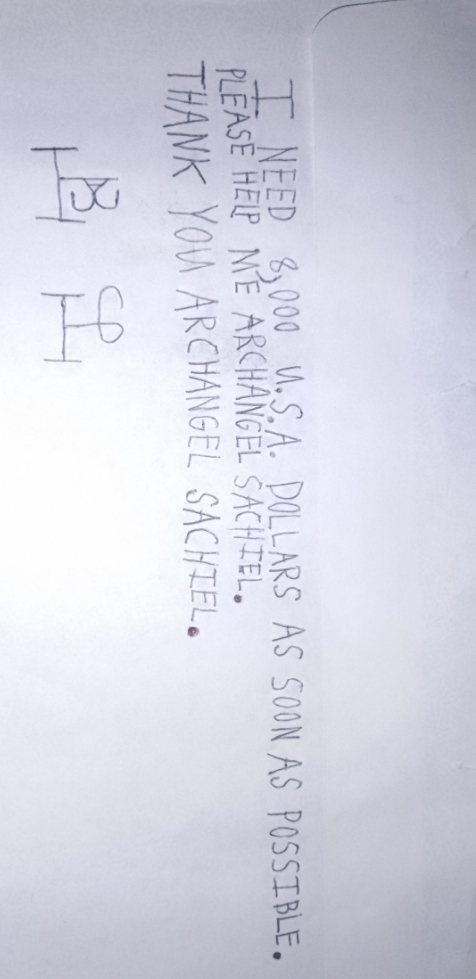 I NEED 8,000 U.S.A. DOLLARS AS SOON AS POSSIBLE.
PLEASE HELP ME ARCHANGEL SACHIEL.
THANK YOU ARCHANGEL SACHIEL.